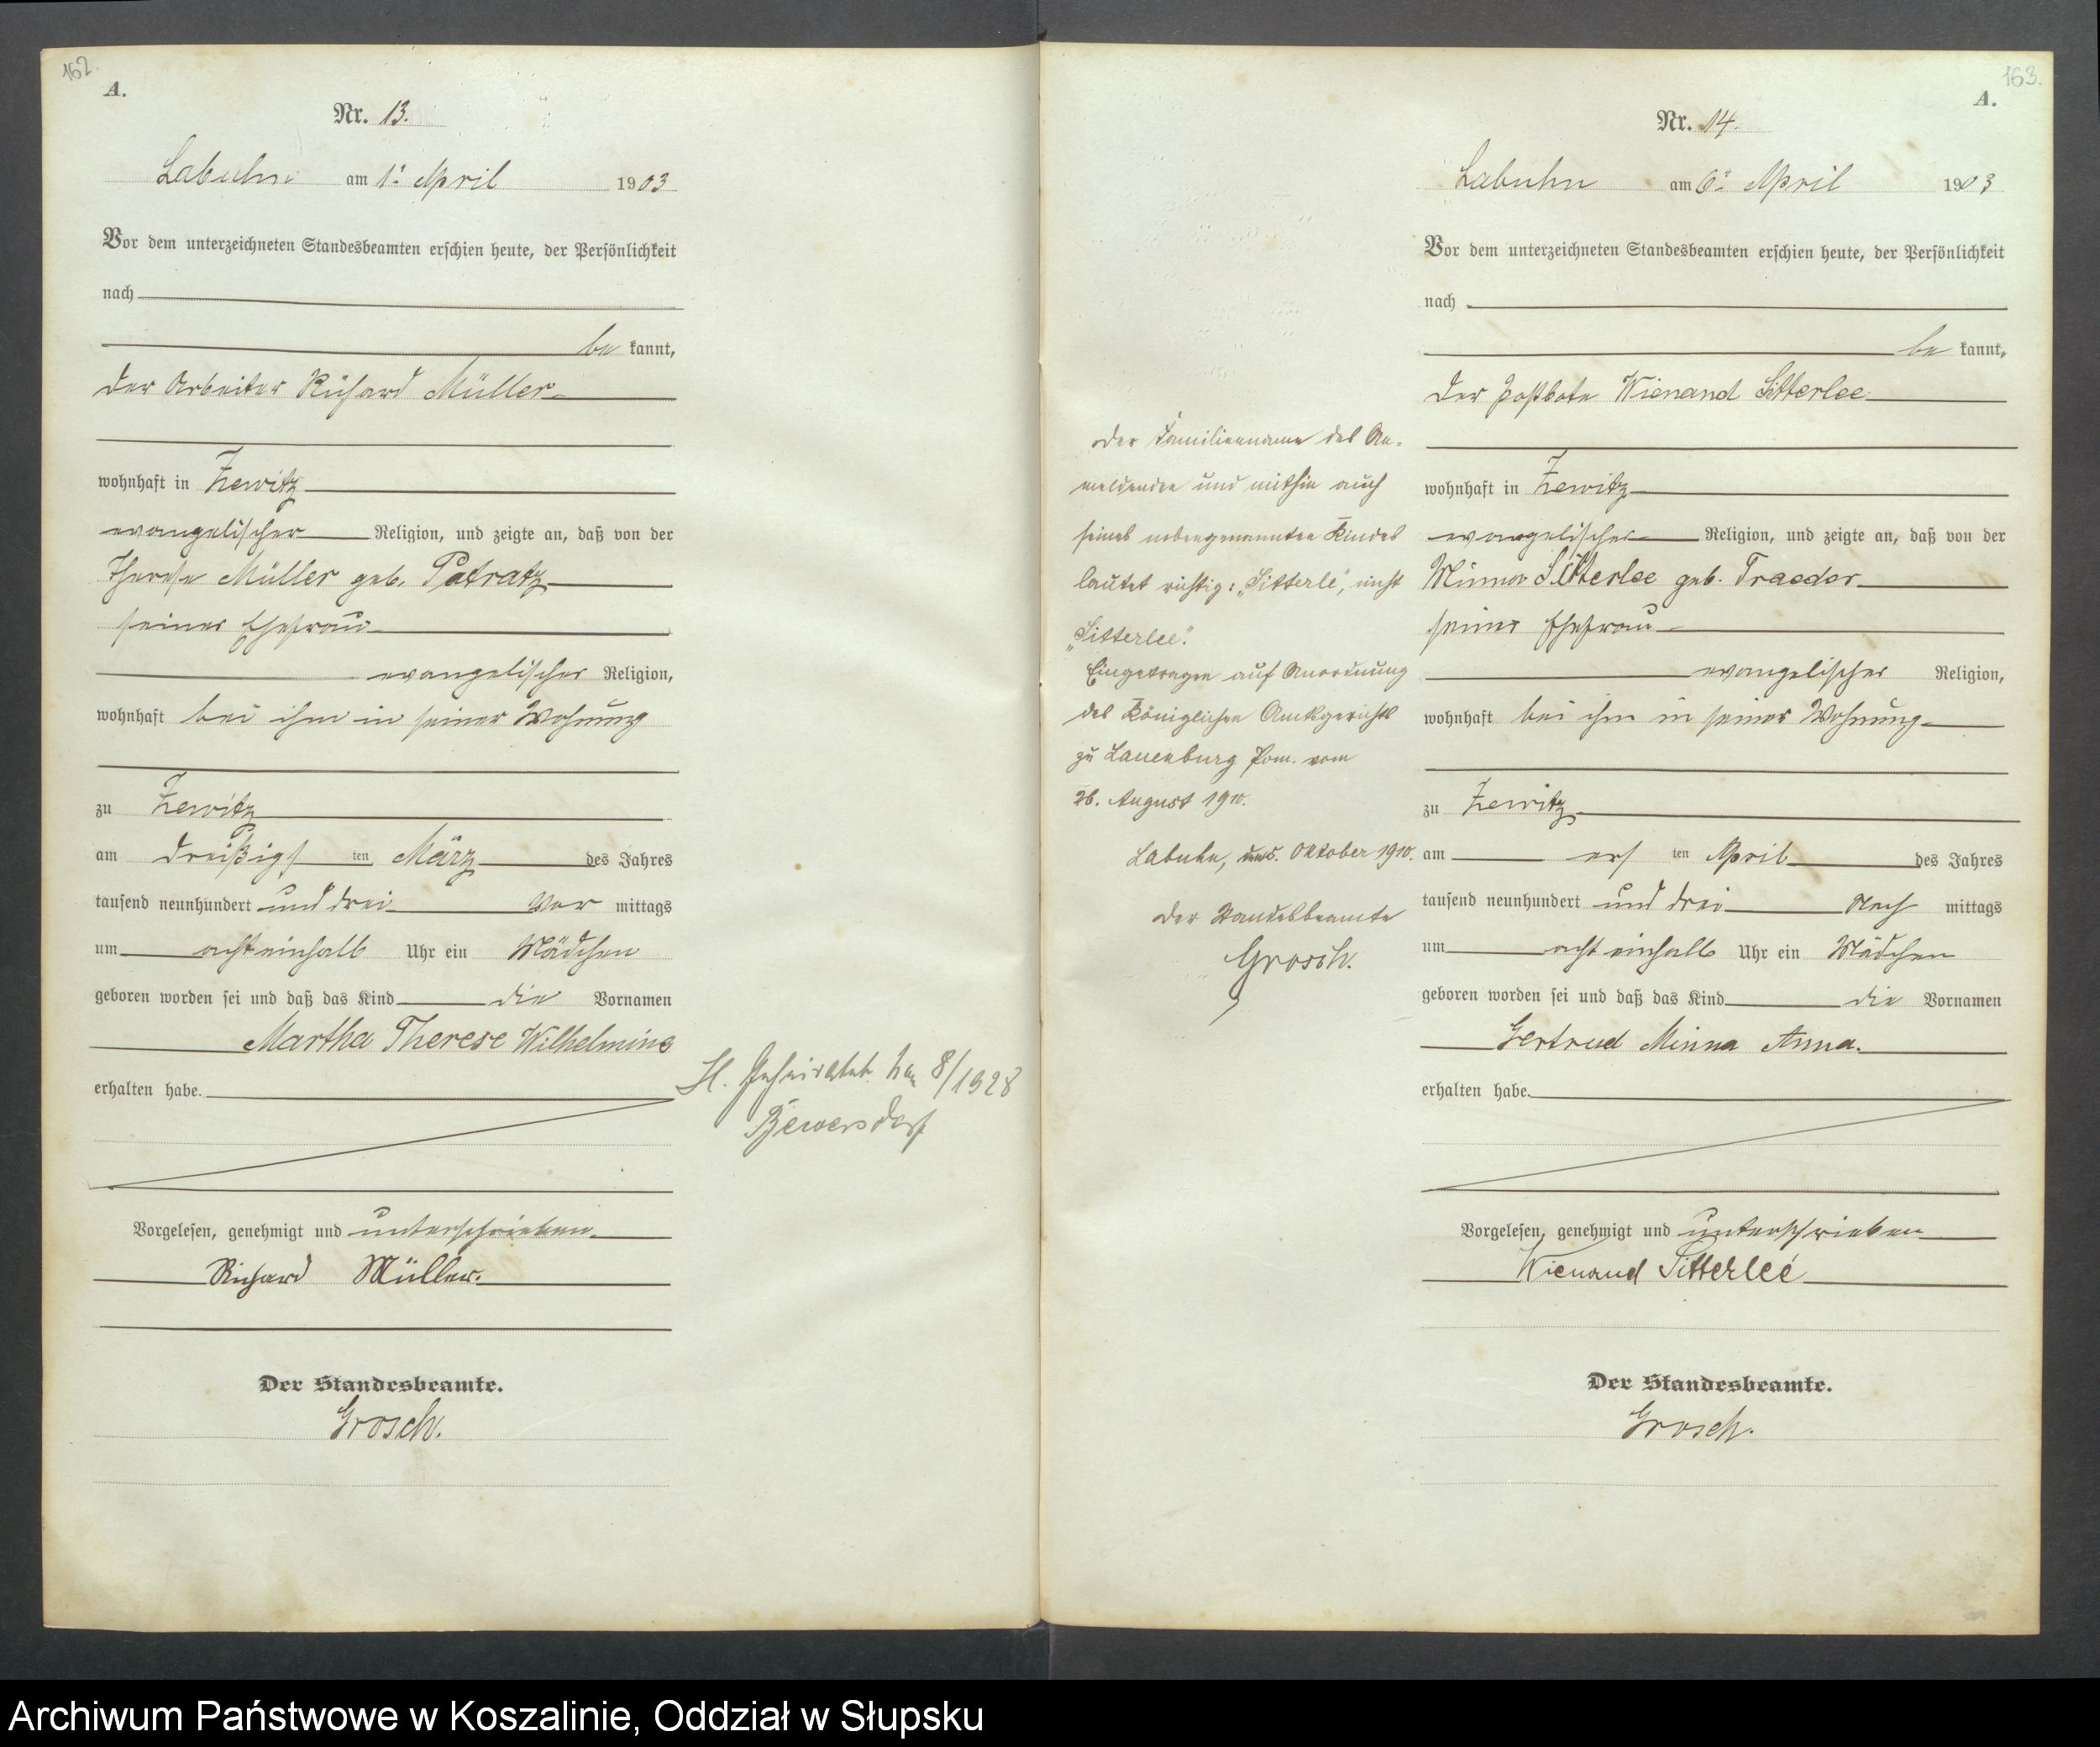 162.
A.
Nr. 13.
Labuhn am 1ᵗ April 1903
Vor dem unterzeichneten Standesbeamten erschien heute, der Persönlichkeit
nach
be kannt,
der Arbeiter Richard Müller
wohnhaft in Zewitz
evangelischer Religion, und zeigte an, daß von der
Therese Müller geb. Patratz
seiner Ehefrau
evangelischer Religion,
wohnhaft bei ihm in seiner Wohnung
zu Zewitz
am dreißigsten März des Jahres
tausend neunhundert und drei Vor mittags
um acht einhalb Uhr ein Mädchen
geboren worden sei und daß das Kind die Vornamen
Martha Therese Wilhelmine
erhalten habe.
Vorgelesen, genehmigt und unterschrieben.
Richard Müller.
Der Standesbeamte.
Grosch.
H. Geheiratet 8/1928
Bewersdorf
163.
A.
Nr. 14.
Labuhn am 6ᵗ April 1903
Vor dem unterzeichneten Standesbeamten erschien heute, der Persönlichkeit
nach
be kannt,
der Postbote Wienand Sitterlee
wohnhaft in Zewitz
evangelischer Religion, und zeigte an, daß von der
Minna Sitterlee geb. Traeder
seiner Ehefrau
evangelischer Religion,
wohnhaft bei ihm in seiner Wohnung
zu Zewitz
am ersten April des Jahres
tausend neunhundert und drei Nach mittags
um acht einhalb Uhr ein Mädchen
geboren worden sei und daß das Kind die Vornamen
Gertrud Minna Anna.
erhalten habe.
Vorgelesen, genehmigt und unterschrieben
Wienand Sitterleé
Der Standesbeamte.
Grosch.
Der Familienname des An-
meldenden und mithin auch
seines nebengenannten Kindes
lautet richtig: „Sitterle", nicht
„Sitterlee".
Eingetragen auf Anordnung
des Königlichen Amtsgerichts
zu Lauenburg Pom. vom
26. August 1910.
Labuhn, 5. Oktober 1910.
Der Standesbeamte
Grosch.
Archiwum Państwowe w Koszalinie, Oddział w Słupsku